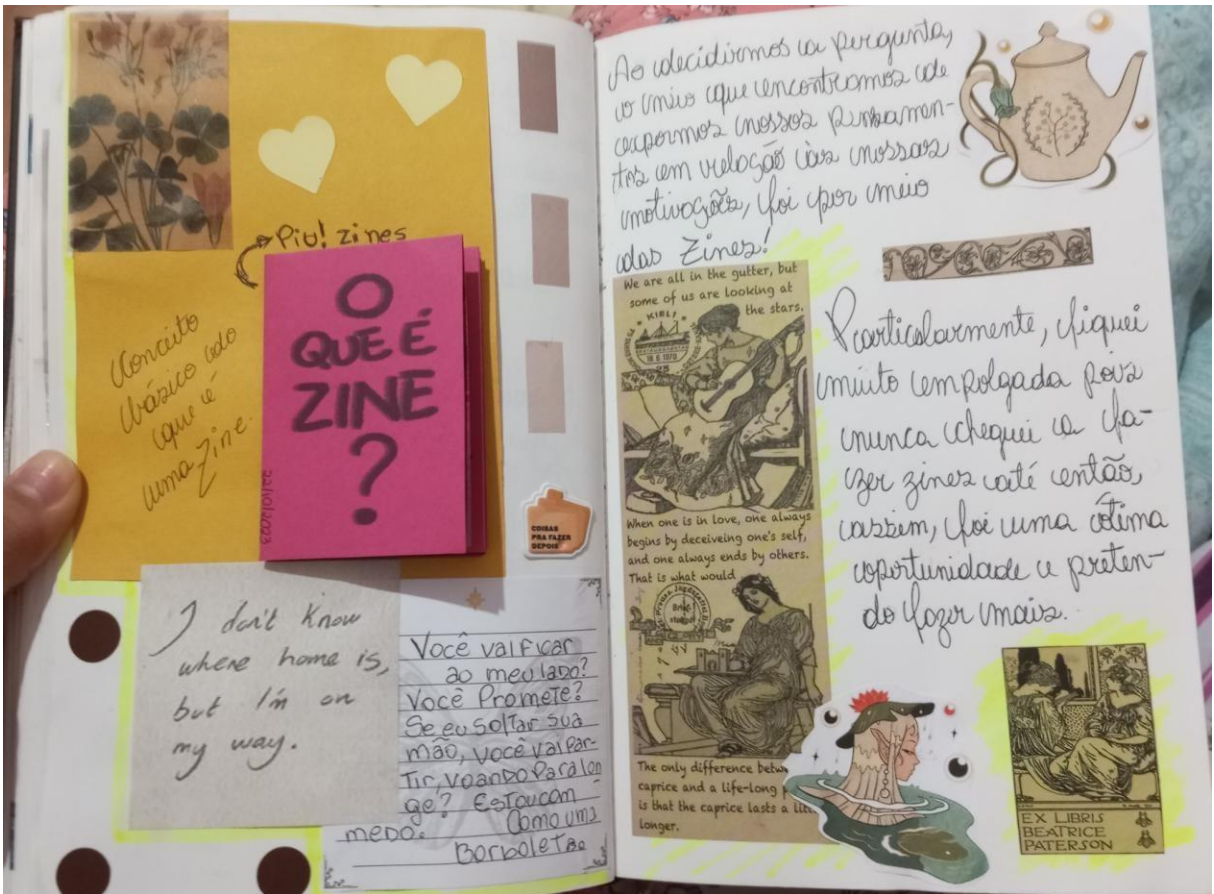 Piu! zines
Conceito
básico do
que é
uma Zine.
O
QUE É
ZINE
?
22/10/2023
COISAS
PRA FAZER
DEPOIS
I don't know
where home is,
but I'm on
my way.
Você vai Ficar
ao meu lado?
Você Promete?
Se eu soltar sua
mão, você vai Par-
Tir, voando Para lon
ge? Estou com
medo. Como uma
Borboleta
Ao decidirmos a pergunta,
o meio que encontramos de
expormos nossos pensamen-
tos em relação às nossas
motivações, foi por meio
das Zines!
We are all in the gutter, but
some of us are looking at
the stars.
KIEL
18.6.1970
When one is in love, one always
begins by deceiveing one's self,
and one always ends by others.
That is what would
The only difference betw
caprice and a life-long p
is that the caprice lasts a lit
longer.
Particularmente, fiquei
muito empolgada pois
nunca cheguei a fa-
zer zines até então,
assim, foi uma ótima
oportunidade e preten-
do fazer mais.
EX LIBRIS
BEATRICE
PATERSON